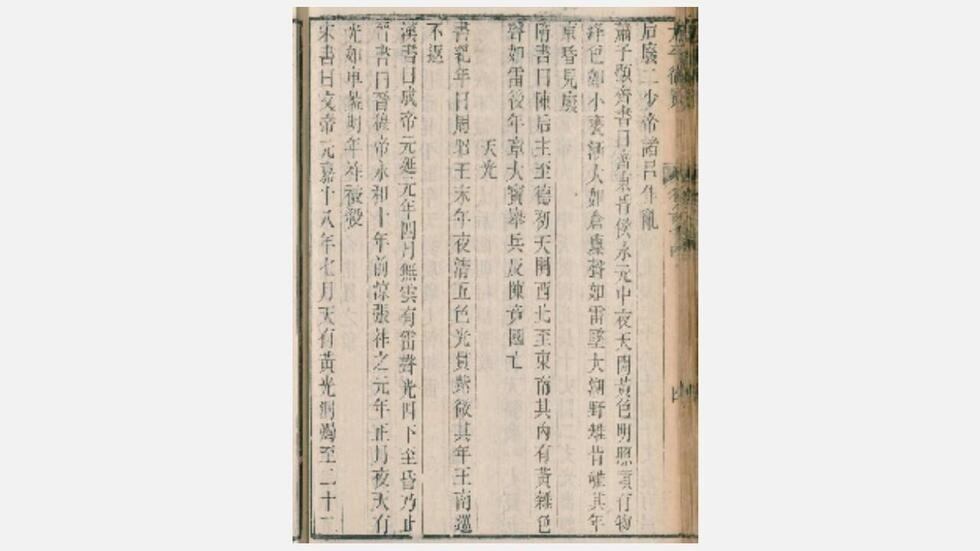 太平御覽
后廢二少帝諸呂作亂
蕭子顯齊書曰齊東昏侯永元中夜天開黃色明照須有物
絳色如小甕漸大如倉廩聲如雷墜大湖野雉皆雊其年
東昏見廢
隋書曰陳后主至德初天開西北至東南其內有黃雜色
聲如雷後年章大寶舉兵反陳竟國亡
天光
書紀年曰周昭王末年夜清五色光貫紫微其年王南巡
不返
漢書曰成帝元延元年四月無雲有雷聲光四下至昏乃止
晉書曰晉穆帝永和十年前涼張祚之元年正月夜天有
光如車蓋明年祚被殺
宋書曰文帝元嘉十八年七月天有黃光洞燭至二十二